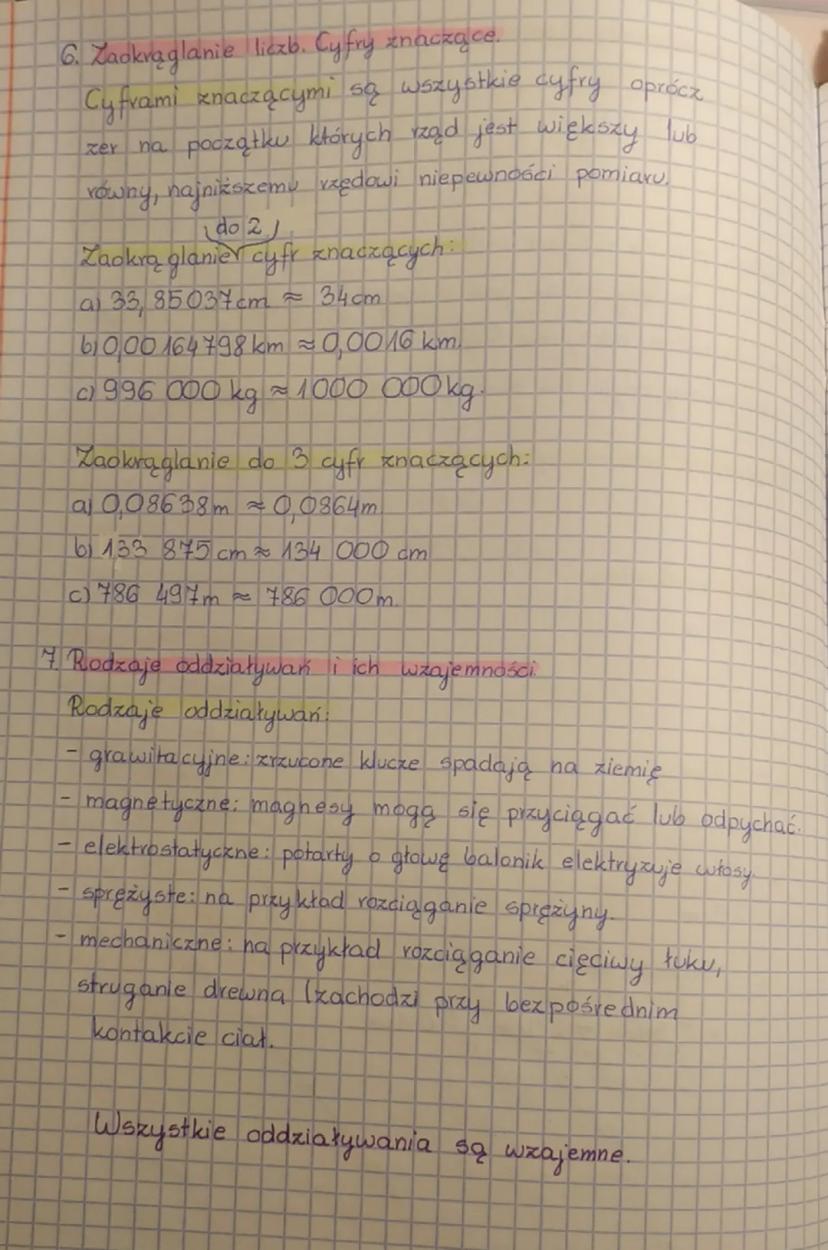 6. Zaokrąglanie liczb. Cyfry znaczące.
Cyframi znaczącymi są wszystkie cyfry oprócz
zer na początku których rząd jest większy lub
równy, najniższemu rzędowi niepewności pomiaru.
(do 2)
Zaokrąglanie cyfr znaczących:
a) 33,85037cm ≈ 34cm
b) 0,00164798km ≈ 0,0016 km.
c) 996 000 kg ≈ 1000 000kg.
Zaokrąglanie do 3 cyfr znaczących:
a) 0,08638m ≈ 0,0864m
b) 133 875 cm ≈ 134 000 cm
c) 786 497m ≈ 786 000m.
7. Rodzaje oddziaływań i ich wzajemności.
Rodzaje oddziaływań:
- grawitacyjne: zrzucone klucze spadają na ziemię
- magnetyczne: magnesy mogą się przyciągać lub odpychać.
- elektrostatyczne: potarty o głowę balonik elektryzuje włosy.
- sprężyste: na przykład rozciąganie sprężyny.
- mechaniczne: na przykład rozciąganie cięciwy łuku,
struganie drewna (zachodzi przy bezpośrednim
kontakcie ciał.
Wszystkie oddziaływania są wzajemne.